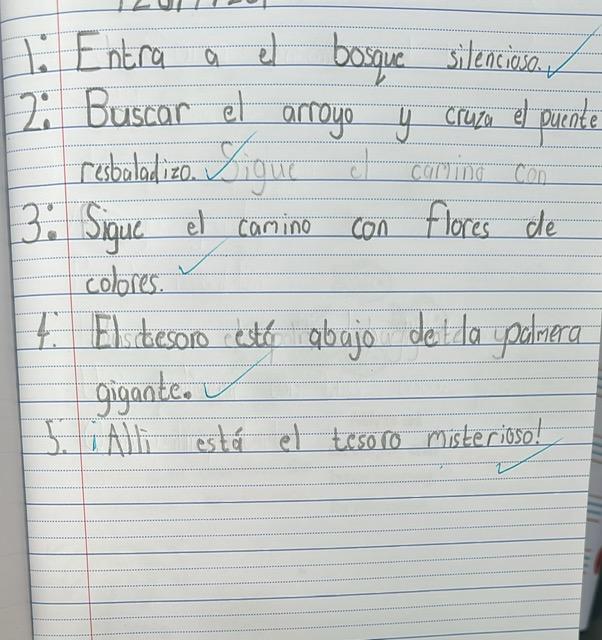 1: Entra a el bosque silencioso.
2: Buscar el arroyo y cruza el puente
resbaladizo. Sigue el camino con
3: Sigue el camino con flores de
colores.
4. El tesoro está abajo de la palmera
gigante.
5. ¡Alli está el tesoro misterioso!